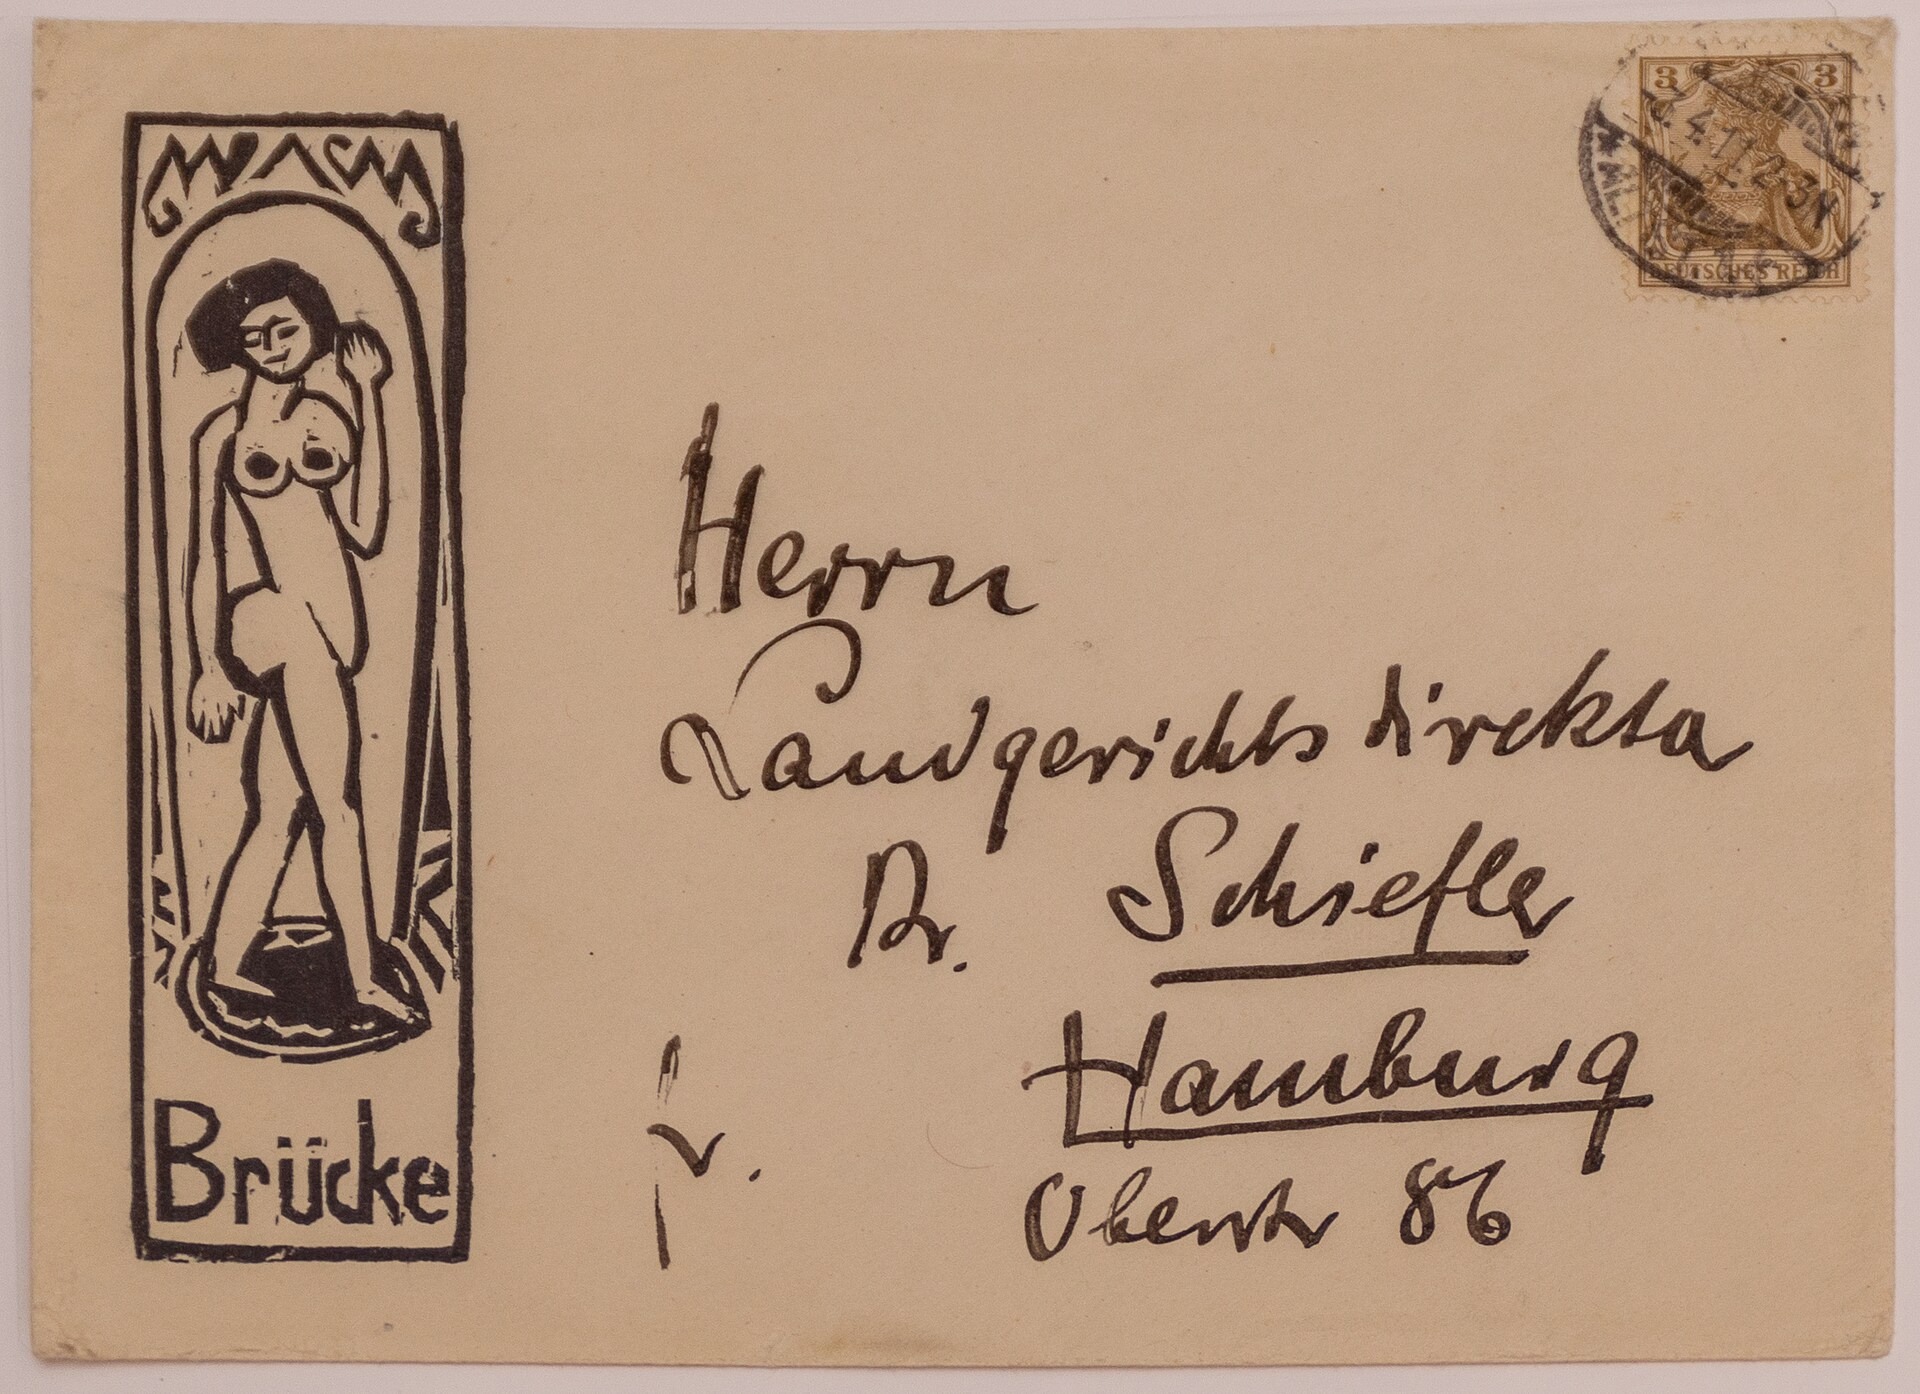 Brücke
3 3
DEUTSCHES REICH
Herrn
Landgerichtsdirektor
Dr. Schiefler
Hamburg
Oberstr 86